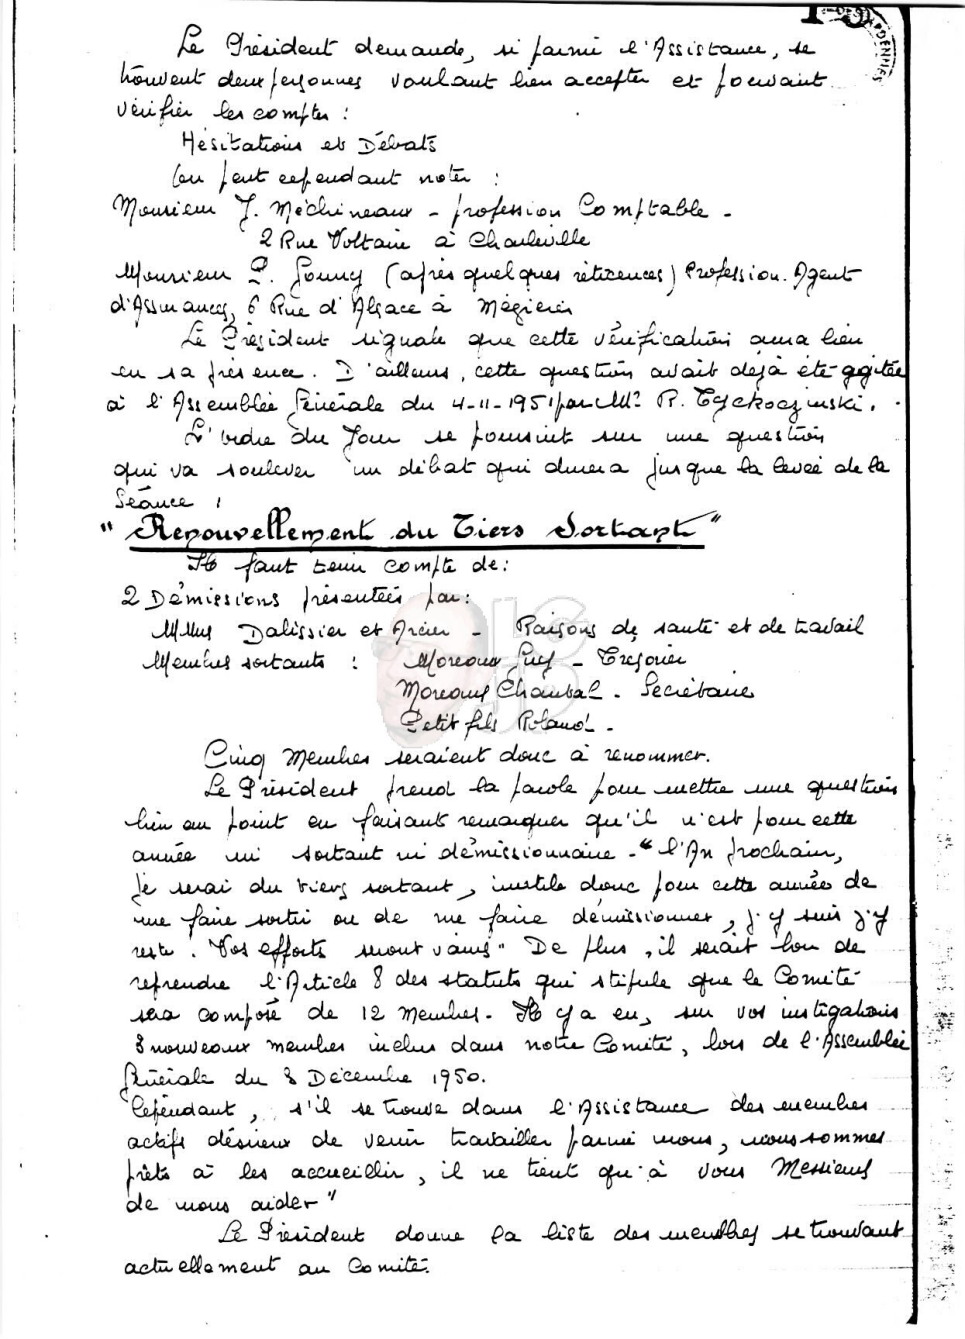 Le Président demande, si parmi l'Assistance, se
trouvent deux personnes voulant bien accepter et pouvant
vérifier les comptes :
Hésitations et Débats
On peut cependant noter :
Monsieur J. Méchineaux - profession Comptable -
2 Rue Voltaire à Charleville
Monsieur P. (après quelques réticences) Profession. Agent
d'Assurances, 6 Rue d'Alsace à Mézières
Le Président signale que cette vérification aura lieu
en sa présence. D'ailleurs, cette question avait déjà été agitée
à l'Assemblée Générale du 4-11-1951 par Mr R. Tyckoczinski.
L'ordre du Jour se poursuit sur une question
qui va soulever un débat qui durera jusque la levée de la
Séance :
"Renouvellement du Tiers Sortant"
Il faut tenir compte de :
2 Démissions présentées par :
MMrs Dalissier et Arcier - Raisons de santé et de travail
Membres sortants : Moreaux Guy - Trésorier
Moreaux Chantal - Secrétaire
Petitfils Roland -
Cinq Membres seraient donc à renommer.
Le Président prend la parole pour mettre une question
bien au point en faisant remarquer qu'il n'est pour cette
année ni sortant ni démissionnaire - "l'An prochain,
je serai du tiers sortant, inutile donc pour cette année de
me faire sortir ou de me faire démissionner, j'y suis j'y
reste. Vos efforts seront vains" De plus, il serait bon de
reprendre l'Article 8 des statuts qui stipule que le Comité
sera composé de 12 Membres. Il y a eu, sur vos instigations
8 nouveaux membres inclus dans notre Comité, lors de l'Assemblée
Générale du 8 Décembre 1950.
Cependant, s'il se trouve dans l'Assistance des membres
actifs désireux de venir travailler parmi nous, nous sommes
prêts à les accueillir, il ne tient qu'à vous Messieurs
de nous aider"
Le Président donne la liste des membres se trouvant
actuellement au Comité.